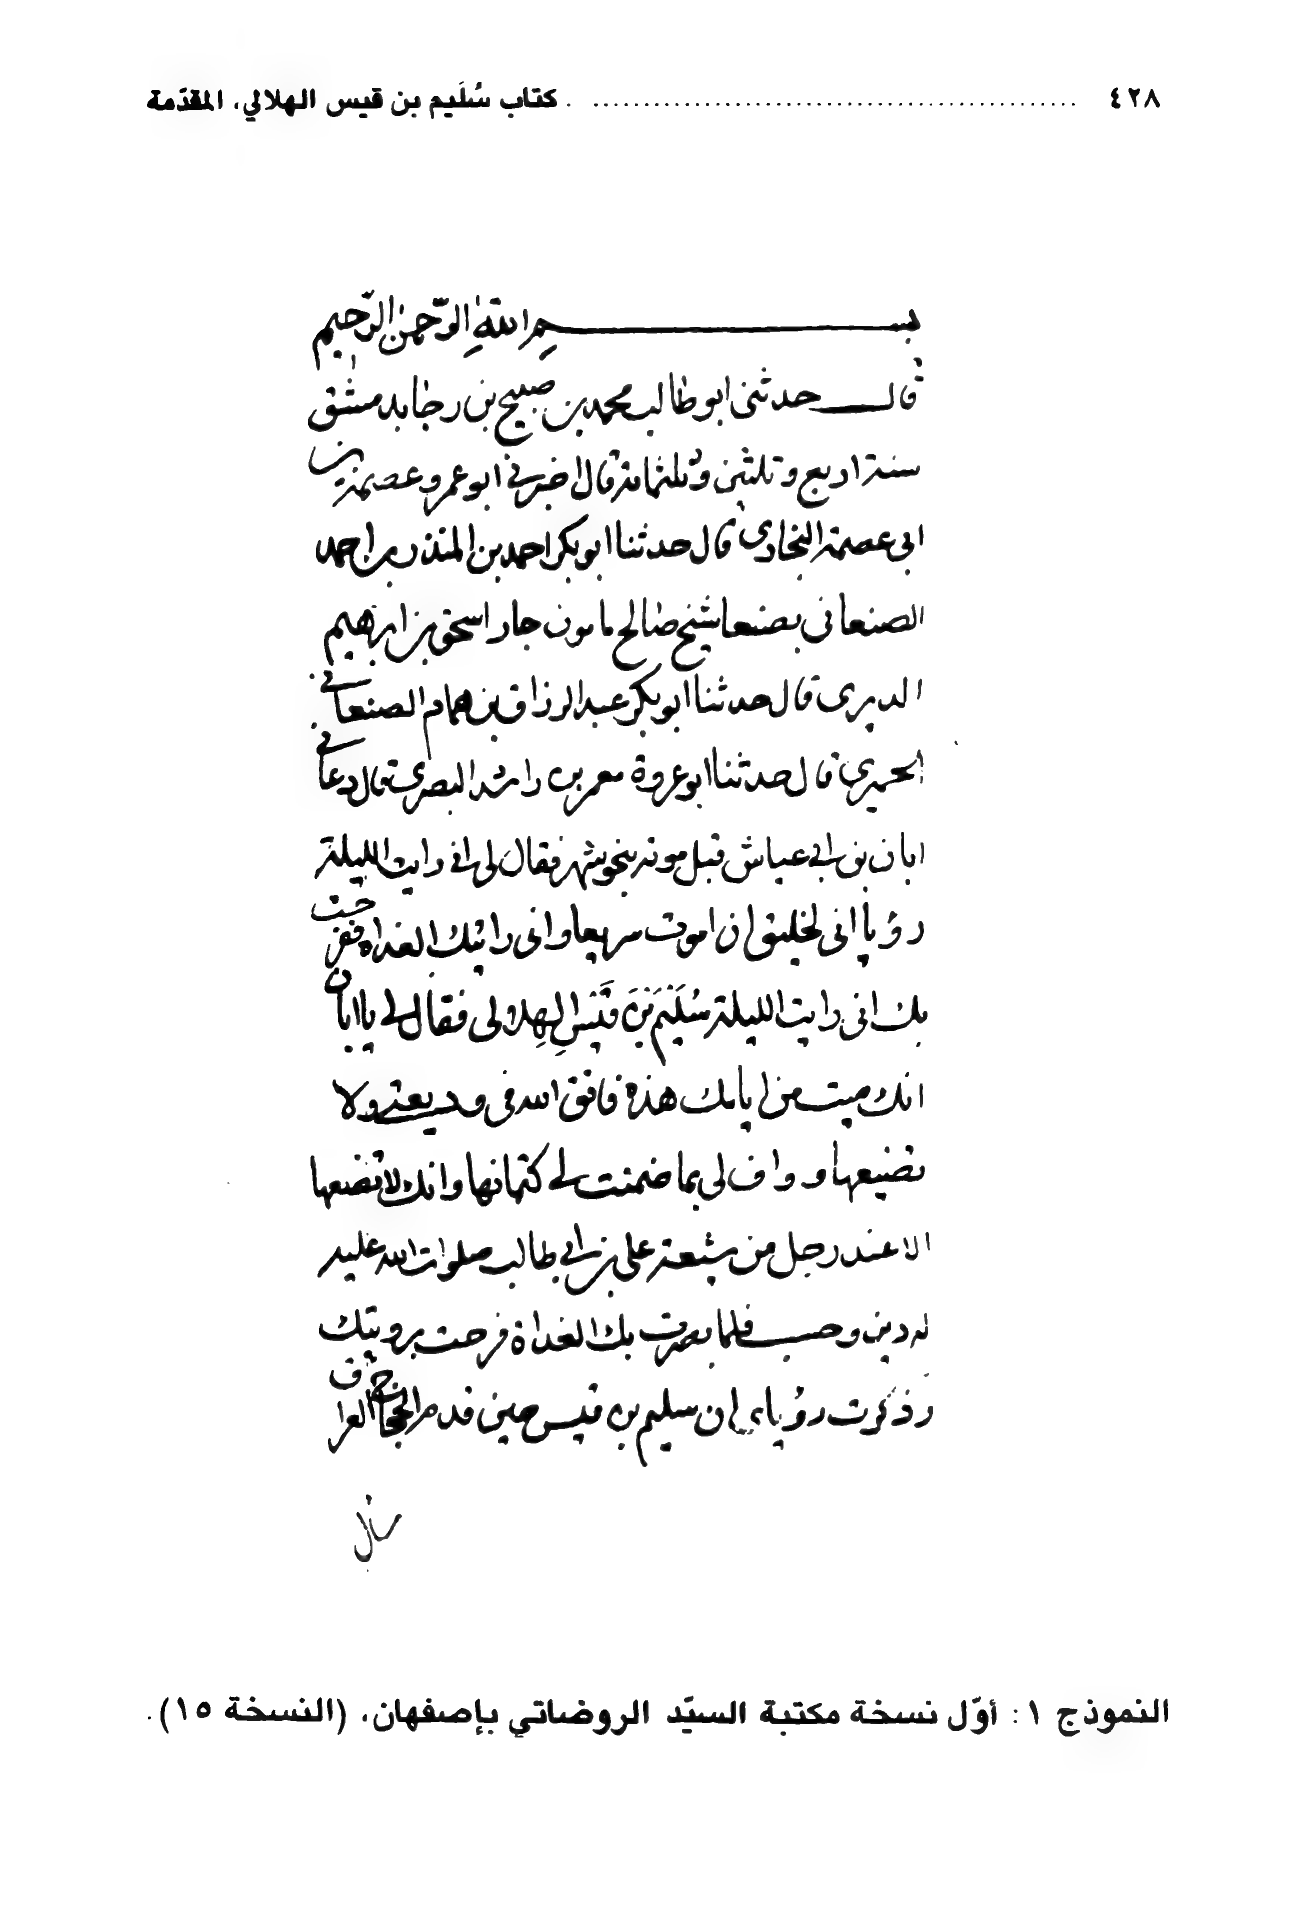 ٤٢٨ ........ كتاب سُلَيم بن قيس الهلالي، المقدّمة
بسم الله الرّحمن الرّحيم
قال حدثني ابو طالب محمد بن صبيح بن رجا بدمشق
سنة اربع وثلثين وثلثمائة قال اخبرني ابو عمرو عصمة بن
ابى عصمة البخارى قال حدثنا ابو بكر احمد بن المنذر بن احمد
الصنعانى بصنعا شيخ صالح مامون جار اسحق بن ابرهيم
الدبرى قال حدثنا ابو بكر عبد الرزاق بن همام الصنعاني
الحميري قال حدثنا ابو عروة معمر بن راشد البصرى قال دعاني
ابان بن ابي عياش قبل موته بنحو شهر فقال لى انى رايت الليلة
رؤيا انى لخليق ان اموت سريعا وانى رايتك الغداة ففرحت
بك انى رايت الليلة سُلَيْمَ بْنَ قَيْسِ الهِلالى فقال لي يا ابان
انك ميت من ايامك هذه فاتق الله فى وديعتى ولا
تضيعها وواف لى بما ضمنت لي كتمانها وانك لا تضعها
الا عند رجل من شيعة على بن ابي طالب صلوات الله عليه
له دين وحسب فلما بصرت بك الغداة فرحت برويتك
وذكرت رؤياى ان سليم بن قيس حين قدم الحجاج العراق
سال
النموذج ١: أوّل نسخة مكتبة السيّد الروضاتي بإصفهان، (النسخة ١٥).